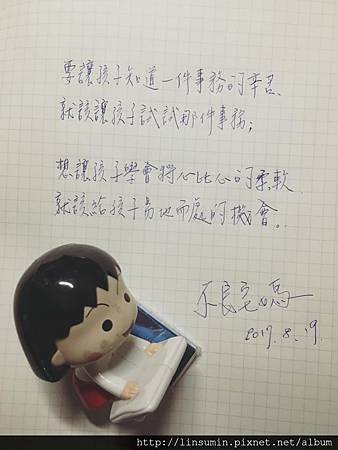 要讓孩子知道一件事務的辛苦、
就該讓孩子試試那件事務；
想讓孩子學會將心比心的柔軟
就該給孩子易地而處的機會。
不良宅媽
2017.8.19
http://linsumin.pixnet.net/album